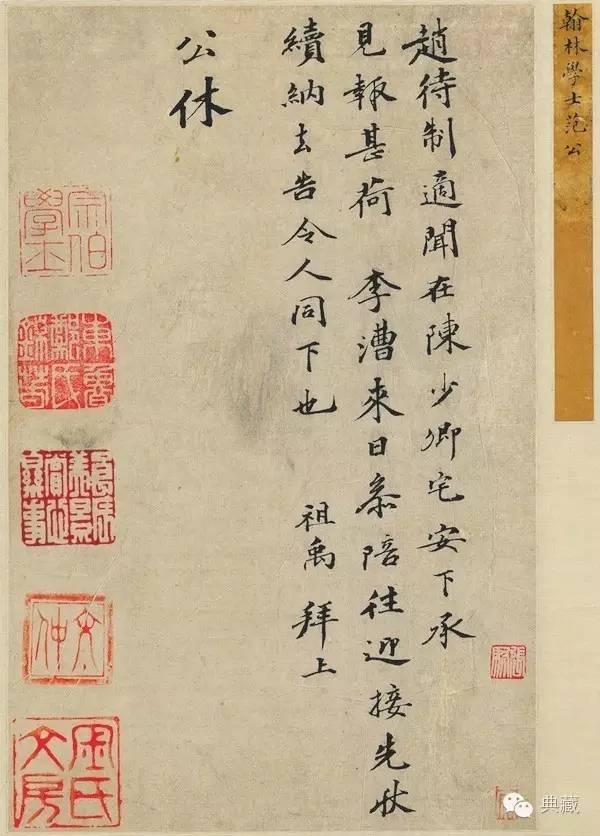 翰林學士范公
趙待制適聞在陳少卿宅安下承
見報甚荷 李漕來日陪往迎接先狀
續納去告令人同下也 祖禹拜上
公休
宗伯學士
典藏